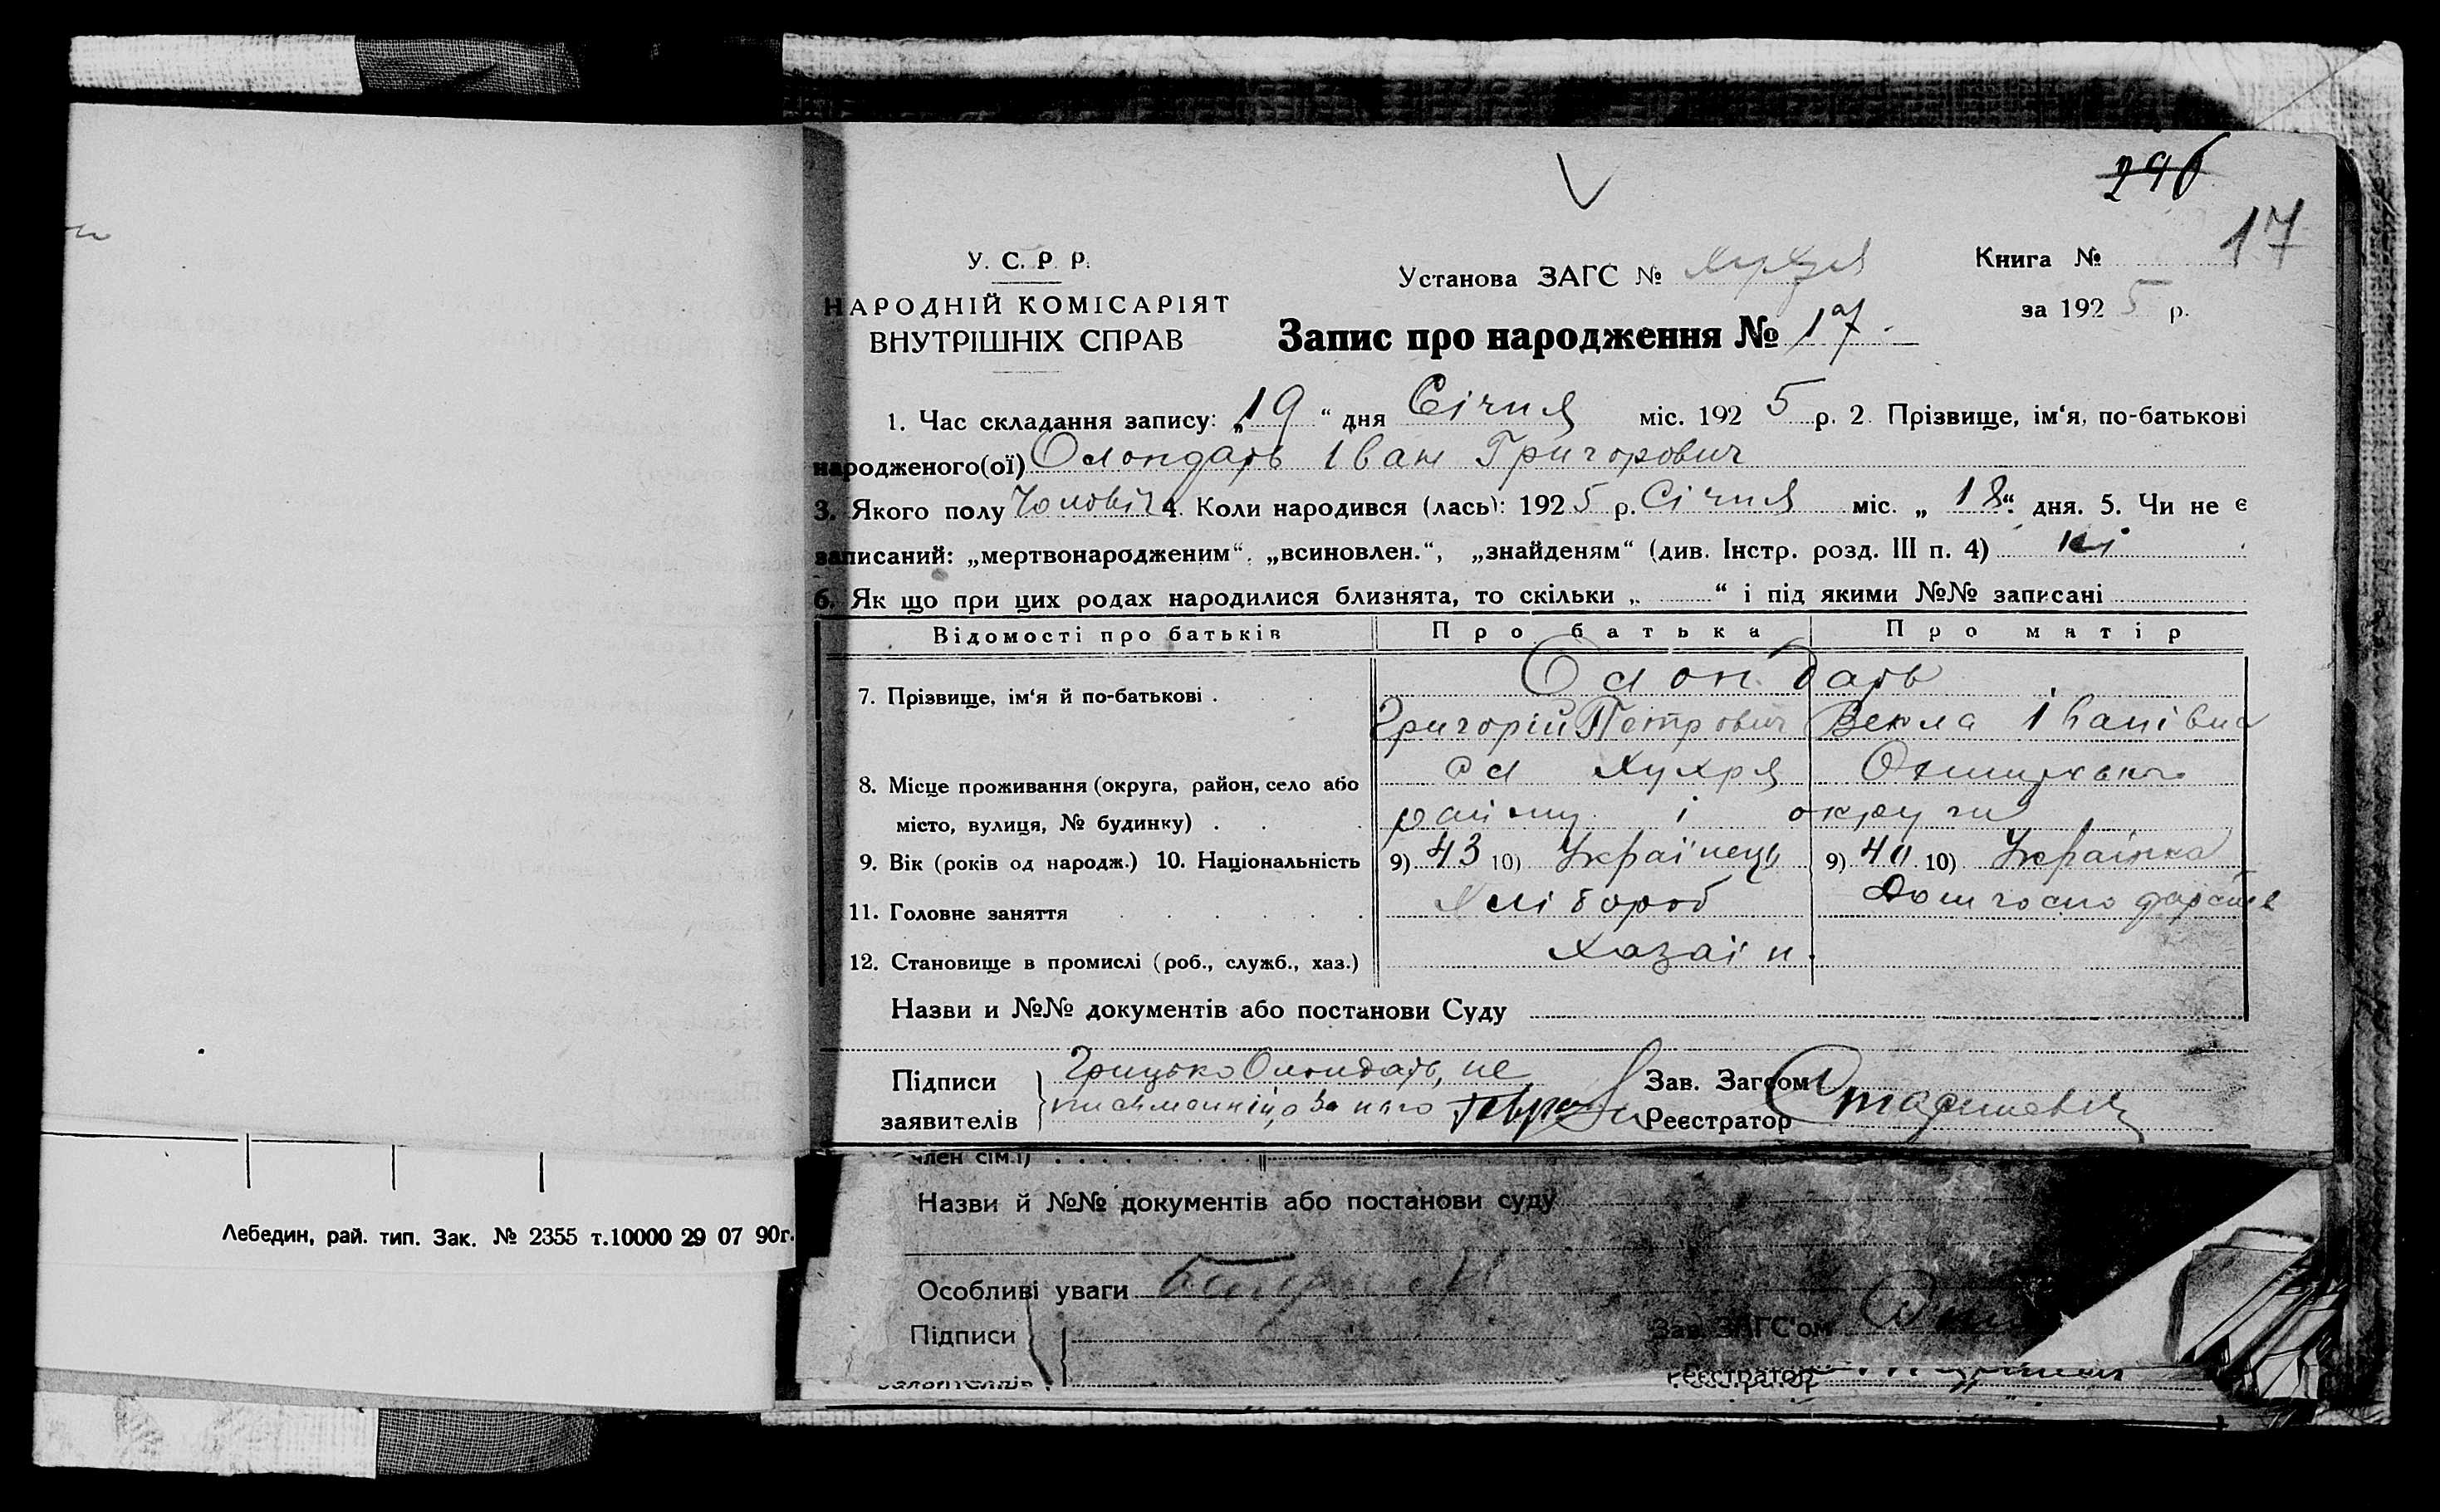 296
17
У. С. Р. Р.
НАРОДНІЙ КОМІСАРІЯТ
ВНУТРІШНІХ СПРАВ
Установа ЗАГС № Хухря
Книга №
за 1925 р.
Запис про народження № 17.
1. Час складання запису: „19“ дня Січня міс. 1925 р. 2. Прізвище, ім‘я, по-батькові
народженого(ої) Олондарь Іван Григорович
3. Якого полу Чоловіч 4. Коли народився (лась): 1925 р. Січня міс. „18“ дня. 5. Чи не є
записаний: „мертвонародженим“, „всиновлен.“, „знайденям“ (див. Інстр. розд. III п. 4) ні
6. Як що при цих родах народилися близнята, то скільки „ “ і під якими №№ записані
Відомості про батьків Про батька Про матір
7. Прізвище, ім‘я й по-батькові . Олондарь
Григорій Петрович Векла Іванівна
8. Місце проживання (округа, район, село або Хухря Охтирського
місто, вулиця, № будинку) . . . району і округи
9. Вік (років од народж.) 10. Національність 9) 43 10) Українець 9) 40 10) Українка
11. Головне заняття . . . . . . Хлібороб Дом господарств
12. Становище в промислі (роб., служб., хаз.) Хазаін.
Назви и №№ документів або постанови Суду
Підписи Грицько Олондарь, не
заявителів письменній, а за него
Зав. Загсом
Реєстратор
член сім.ї) . . . . . . . .
Назви й №№ документів або постанови суду
Особливі уваги
Підписи
Зав. ЗАГС'ом
заявителів
Реєстратор
Лебедин, рай. тип. Зак. № 2355 т.10000 29 07 90г.